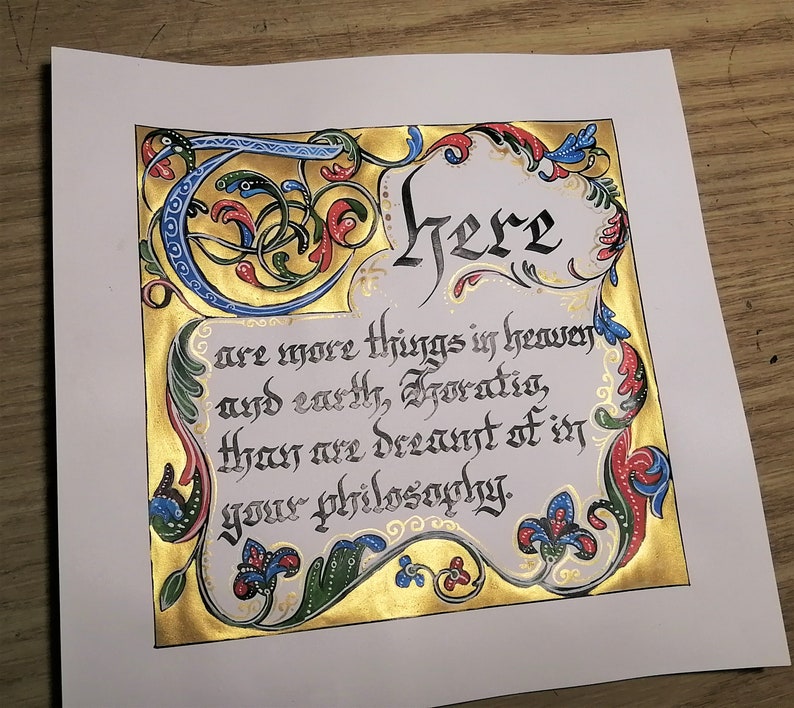 There
are more things in heaven
and earth, Horatio,
than are dreamt of in
your philosophy.